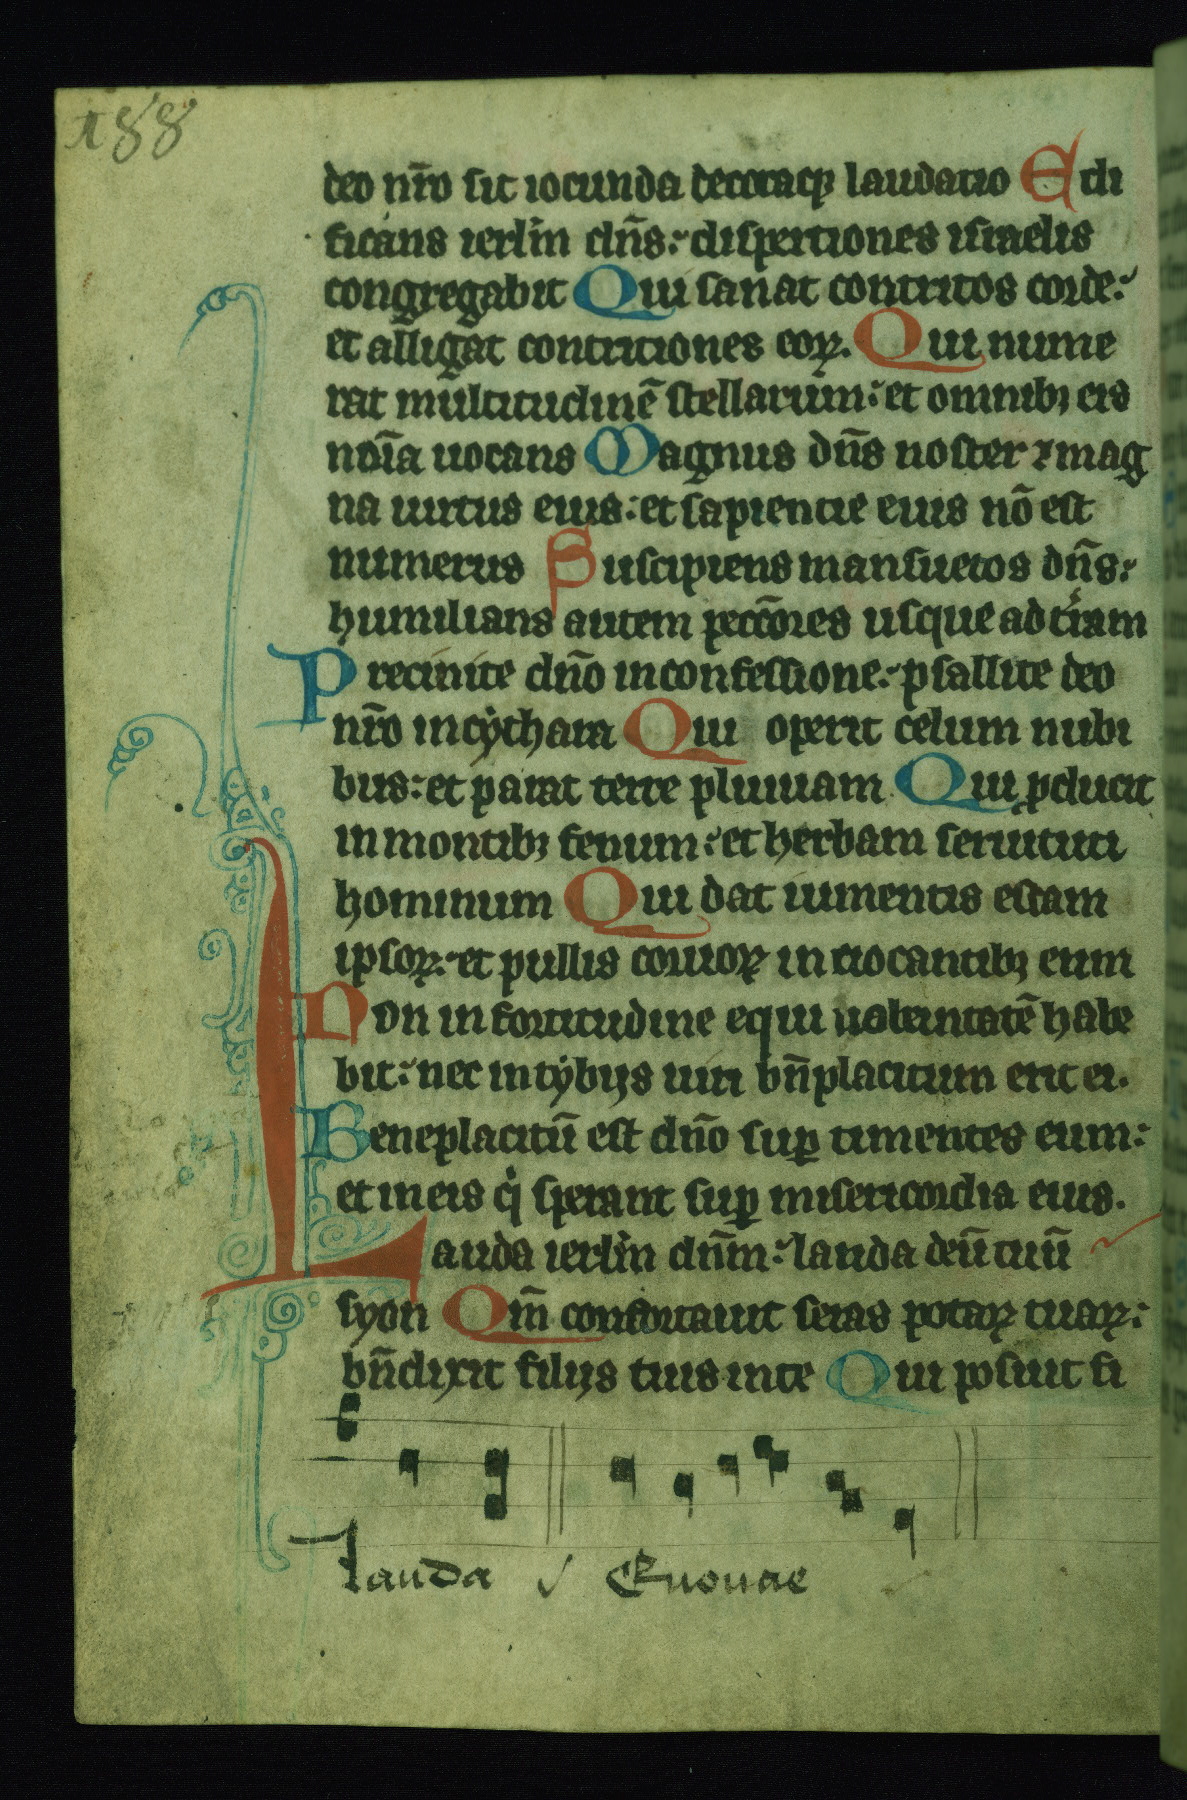 188
deo nr̄o sit iocunda decoraqꝫ laudatio Edi
ficans ierl̄m dn̄s: dispertiones israelis
congregabit Qui sanat contritos corde:
et alligat contritiones eoꝝ. Qui nume
rat multitudinē stellarum: et omnibꝫ eis
noīa uocans Magnus dn̄s noster ⁊ mag
na uirtus eius: et sapientie eius nō est
numerus Suscipiens mansuetos dn̄s:
humilians autem pecc̄ores usque ad t̄ram
Precinite dn̄o in confessione: psallite deo
nr̄o in cythara Qui operit celum nubi
bus: et parat terre pluuiam Qui ꝓducit
in montibꝫ fenum: et herbam seruituti
hominum Qui dat iumentis escam
ipsoꝝ: et pullis coruoꝝ inuocantibꝫ eum
Non in fortitudine equi uoluntatē habe
bit: nec in tybijs uiri bn̄placitum erit ei.
Beneplacitū est dn̄o suꝑ timentes eum:
et in eis qͥ sperant suꝑ misericordia eius.
Lauda ierl̄m dn̄m: lauda deū tuū
syon Qm̄ confortauit seras portaꝝ tuaꝝ:
bn̄dixit filijs tuis in te Qui posuit fi
Lauda Euouae